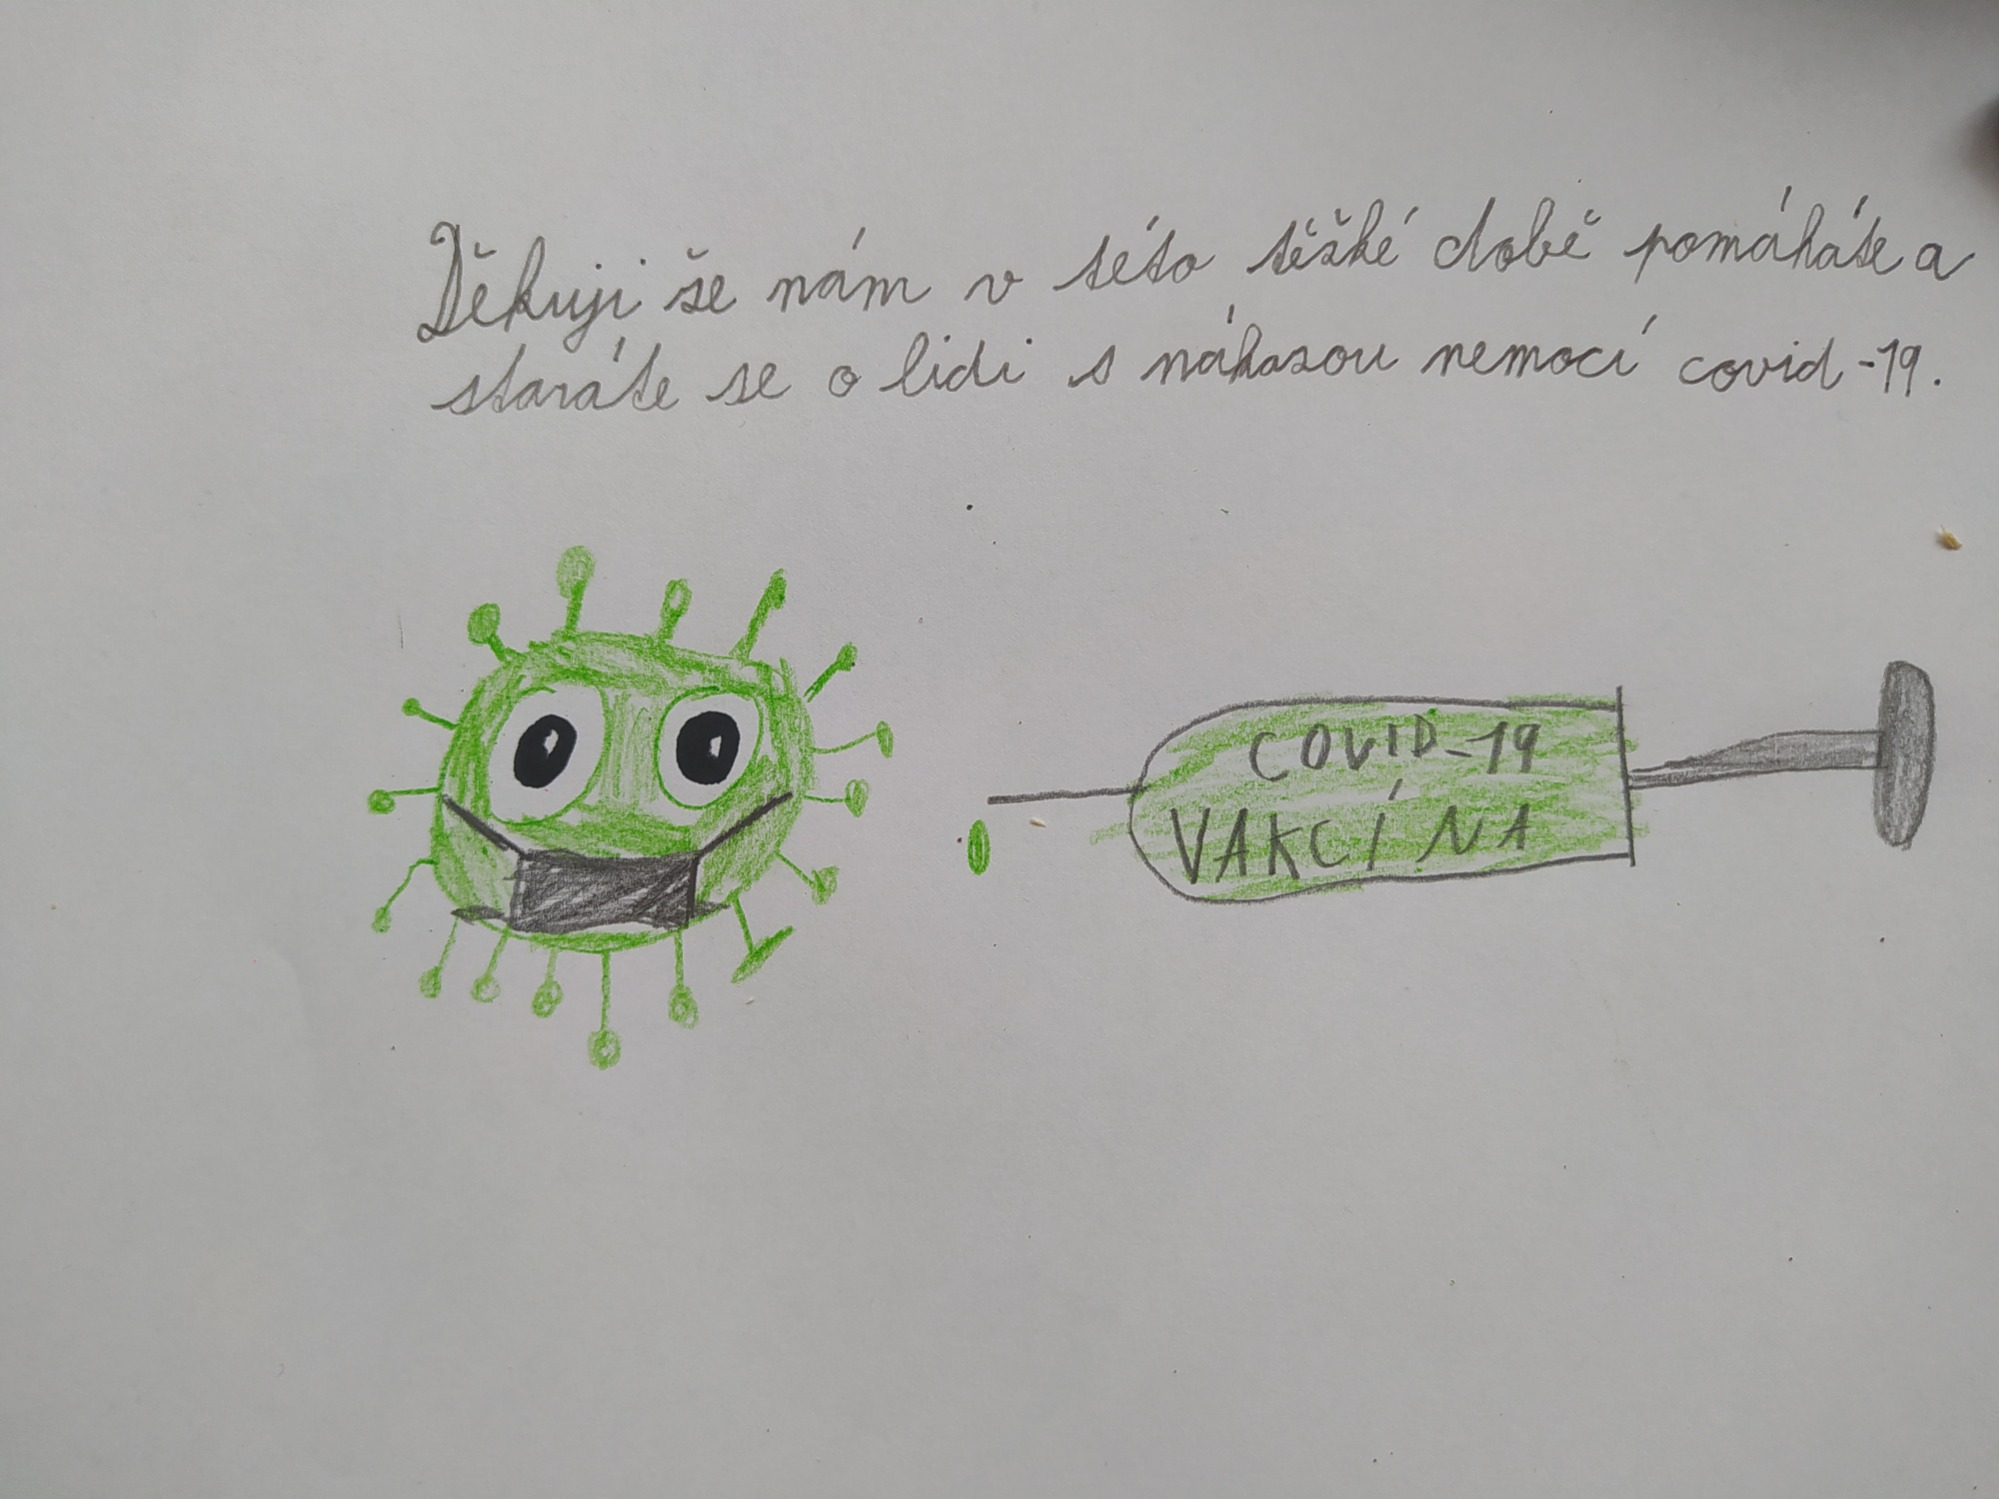 Děkuji še nám v této těžké době pomáháte a
staráte se o lidi s nákazou nemocí covid-19.
COVID-19
VAKCÍNA